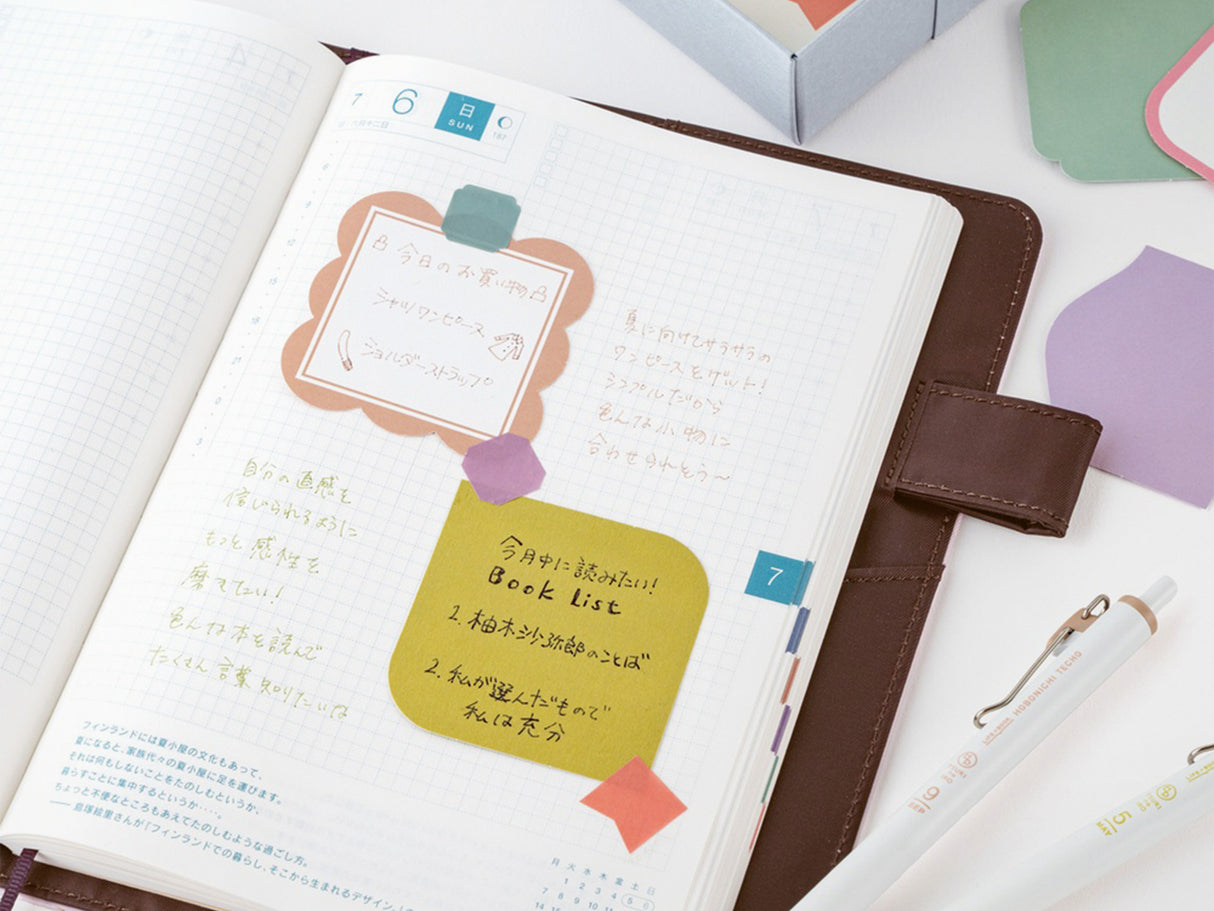 7 6 日
SUN
187
今日のお買い物
シャツワンピース
ショルダーストラップ
夏に向けてサラサラの
ワンピースをゲット!
シンプルだから
色んな小物に
合わせられそう〜
自分の直感を
信じられるように
もっと感性を
磨きたい!
色んな本を読んで
たくさん言葉知りたいな
今月中に読みたい!
Book List
2. 柚木沙弥郎のことば
2. 私が選んだもので
私は充分
7
フィンランドには夏小屋の文化もあって、
夏になると、家族代々の夏小屋に足を運びます。
それは何もしないことをたのしむというか、
暮らすことに集中するというか‥‥。
ちょっと不便なところもあえてたのしむような過ごし方。
―― 島塚絵里さんが「フィンランドでの暮らし、そこから生まれるデザイン。」
月 火 水 木 金 土 日
1 2 3 4 5 6
7 8 9 10 11
14 15
9 SEP
LIFE is BOOK HOBONICHI TECHO
5 MAY